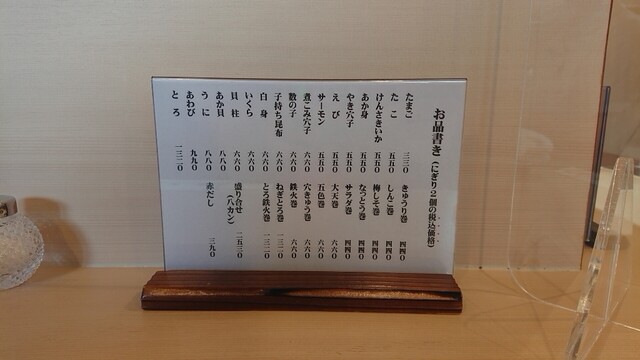 お品書き(にぎり2個の税込価格)
たまご 三三〇
たこ 五五〇
けんさきいか 五五〇
あか身 五五〇
やき穴子 五五〇
えび 五五〇
サーモン 五五〇
煮こみ穴子 六六〇
数の子 六六〇
子持ち昆布 六六〇
白身 六六〇
いくら 六六〇
貝柱 六六〇
あか貝 八八〇
うに 八八〇
あわび 九九〇
とろ 一三二〇
きゅうり巻 四四〇
しんこ巻 四四〇
梅しそ巻 四四〇
なっとう巻 四四〇
サラダ巻 四四〇
大天巻 六六〇
五色巻 六六〇
穴きゅう巻 六六〇
鉄火巻 六六〇
ねぎとろ巻 一三二〇
とろ鉄火巻 一三二〇
盛り合せ
(八カン) 二五三〇
赤だし 三九〇